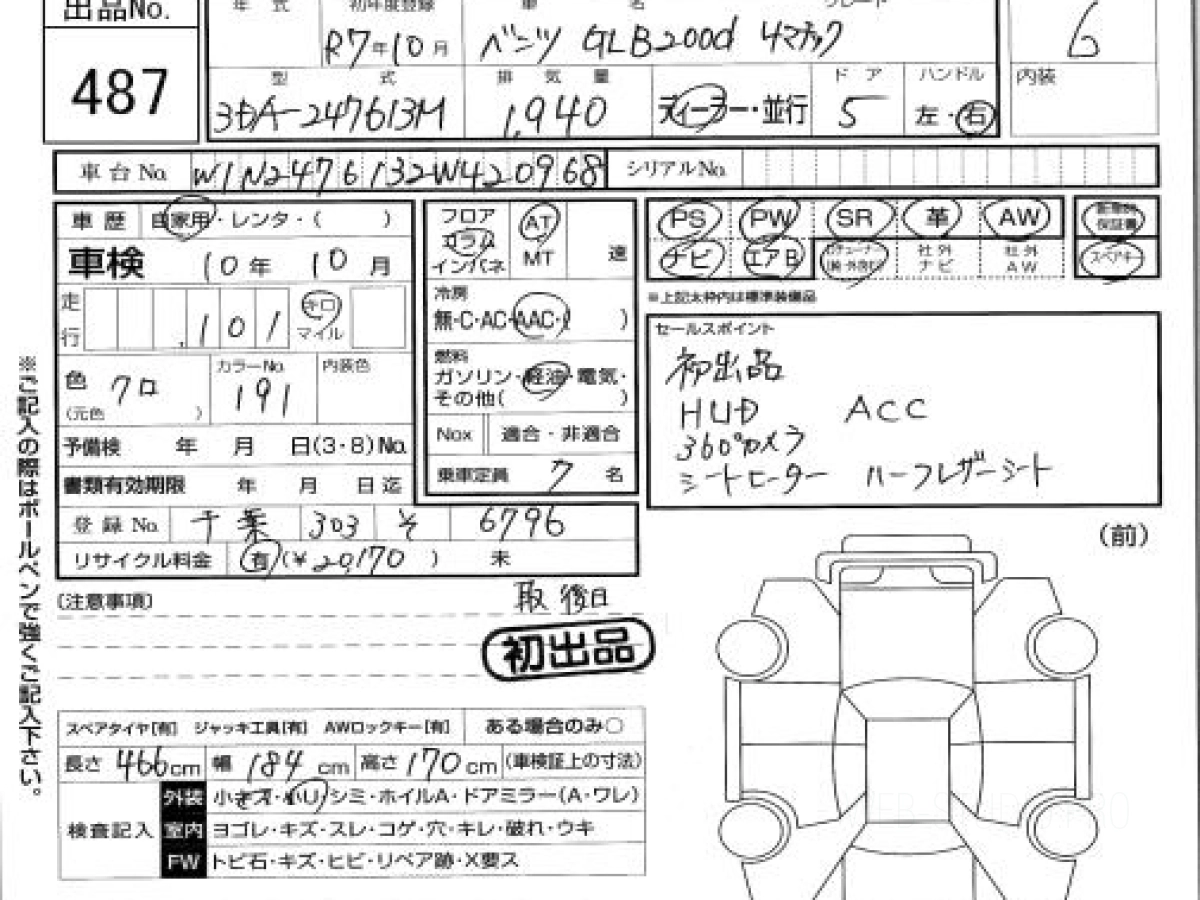 出品No. 年 式 初年度登録 車 名 グレード
487 R7年10月 ベンツ GLB200d 4マチック 6
型 式 排 気 量 ディーラー・並行 ドア ハンドル 内装
3DA-247613M 1,940 5 左・右
車台No. W1N2476132W420968 シリアルNo.
車歴 自家用・レンタ・( )
車検 10年 10月
走行 101 キロ マイル
色 クロ (元色 ) カラーNo. 191 内装色
予備検 年 月 日(3・8)No.
書類有効期限 年 月 日迄
登録No. 千葉 303 そ 6796
リサイクル料金 有(¥20,170 ) 未
フロア コラム インパネ AT MT 速
冷房
無・C・AC・AAC・( )
燃料
ガソリン・軽油・電気・
その他( )
Nox 適合・非適合
乗車定員 7 名
PS PW SR 革 AW 保証書
ナビ エアB 社外ナビ 社外AW スペアキー
※上記太枠内は標準装備品
セールスポイント
初出品
HUD ACC
360°カメラ
シートヒーター ハーフレザーシート
(前)
(注意事項) 取 後日
初出品
スペアタイヤ[有] ジャッキ工具[有] AWロックキー[有] ある場合のみ○
長さ 466cm 幅 184cm 高さ 170cm (車検証上の寸法)
検査記入
外装 小キズ・小U・シミ・ホイルA・ドアミラー(A・ワレ)
室内 ヨゴレ・キズ・スレ・コゲ・穴・キレ・破れ・ウキ
FW トビ石・キズ・ヒビ・リペア跡・X要ス
※ご記入の際はボールペンで強くご記入下さい。